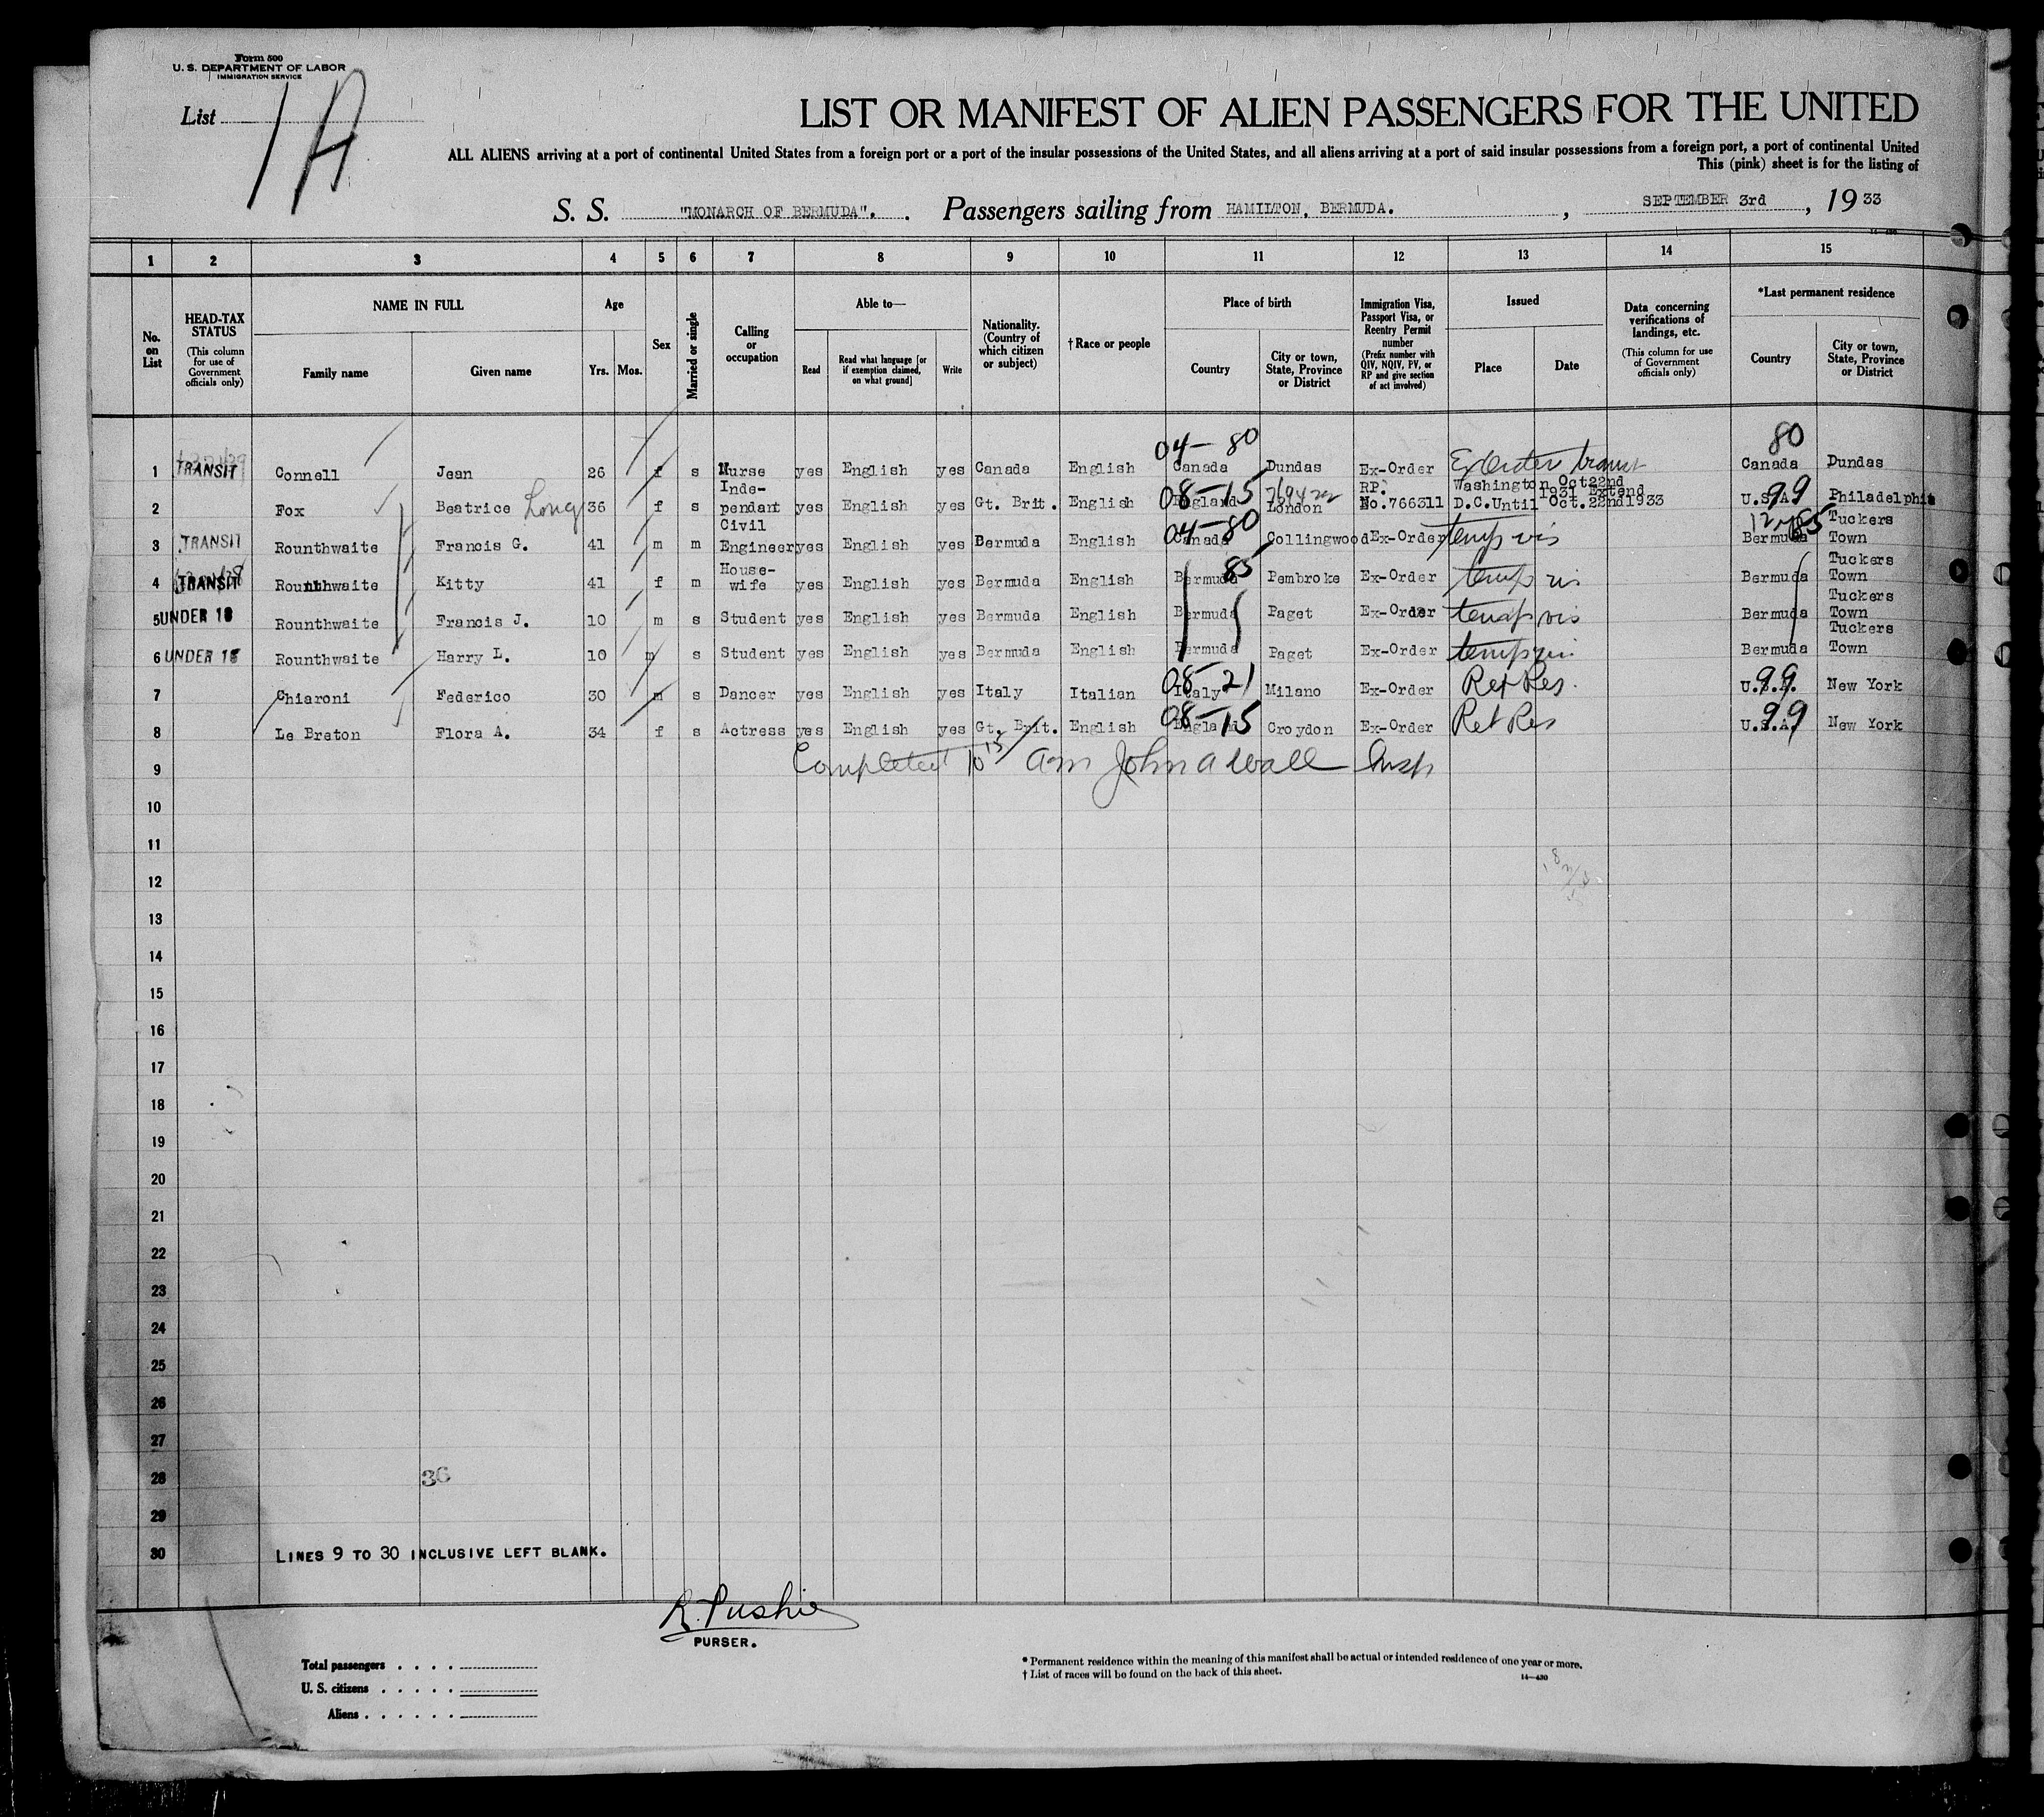 Form 500
U. S. DEPARTMENT OF LABOR
IMMIGRATION SERVICE
List 1A
LIST OR MANIFEST OF ALIEN PASSENGERS FOR THE UNITED
ALL ALIENS arriving at a port of continental United States from a foreign port or a port of the insular possessions of the United States, and all aliens arriving at a port of said insular possessions from a foreign port, a port of continental United
This (pink) sheet is for the listing of
S. S. "MONARCH OF BERMUDA". Passengers sailing from HAMILTON, BERMUDA. , SEPTEMBER 3rd , 19 33
14-430
1 2 3 4 5 6 7 8 9 10 11 12 13 14 15
No. on List
HEAD-TAX STATUS (This column for use of Government officials only)
NAME IN FULL
Family name Given name
Age
Yrs. Mos.
Sex
Married or single
Calling or occupation
Able to—
Read Read what language [or if exemption claimed, on what ground] Write
Nationality. (Country of which citizen or subject)
† Race or people
Place of birth
Country City or town, State, Province or District
Immigration Visa, Passport Visa, or Reentry Permit number (Prefix number with QIV, NQIV, PV, or RP and give section of act involved)
Issued
Place Date
Data concerning verifications of landings, etc. (This column for use of Government officials only)
*Last permanent residence
Country City or town, State, Province or District
04-80 80
1 TRANSIT Connell Jean 26 f s Nurse yes English yes Canada English Canada Dundas Ex-Order Ex Order transit Canada Dundas
2 Fox Beatrice Long 36 f s Inde-pendant yes English yes Gt. Brit. English England 08-15 London RP. No.766311 Washington D.C. Oct22nd 1931 Extend Until Oct.22nd1933 U.S.A. 99 Philadelphia
3 TRANSIT Rounthwaite Francis G. 41 m m Civil Engineer yes English yes Bermuda English Canada 04-80 Collingwood Ex-Order temp vis Bermuda 85 Tuckers Town
4 TRANSIT Rounthwaite Kitty 41 f m House-wife yes English yes Bermuda English Bermuda 85 Pembroke Ex-Order temp vis Bermuda Tuckers Town
5 UNDER 16 Rounthwaite Francis J. 10 m s Student yes English yes Bermuda English Bermuda Paget Ex-Order temp vis Bermuda Tuckers Town
6 UNDER 16 Rounthwaite Harry L. 10 m s Student yes English yes Bermuda English Bermuda Paget Ex-Order temp vis Bermuda Tuckers Town
7 Chiaroni Federico 30 m s Dancer yes English yes Italy Italian Italy 08-21 Milano Ex-Order Ret Res. U.S.A. 99 New York
8 Le Breton Flora A. 34 f s Actress yes English yes Gt. Brit. English England 08-15 Croydon Ex-Order Ret Res U.S.A. 99 New York
9 Completed 10 15 am John A Wall Insp
10
11
12
13
14
15
16
17
18
19
20
21
22
23
24
25
26
27
28 36
29
30 LINES 9 TO 30 INCLUSIVE LEFT BLANK.
R. Pushie
PURSER.
Total passengers . . . .
U. S. citizens . . . . .
Aliens . . . . . .
* Permanent residence within the meaning of this manifest shall be actual or intended residence of one year or more.
† List of races will be found on the back of this sheet.
14-430